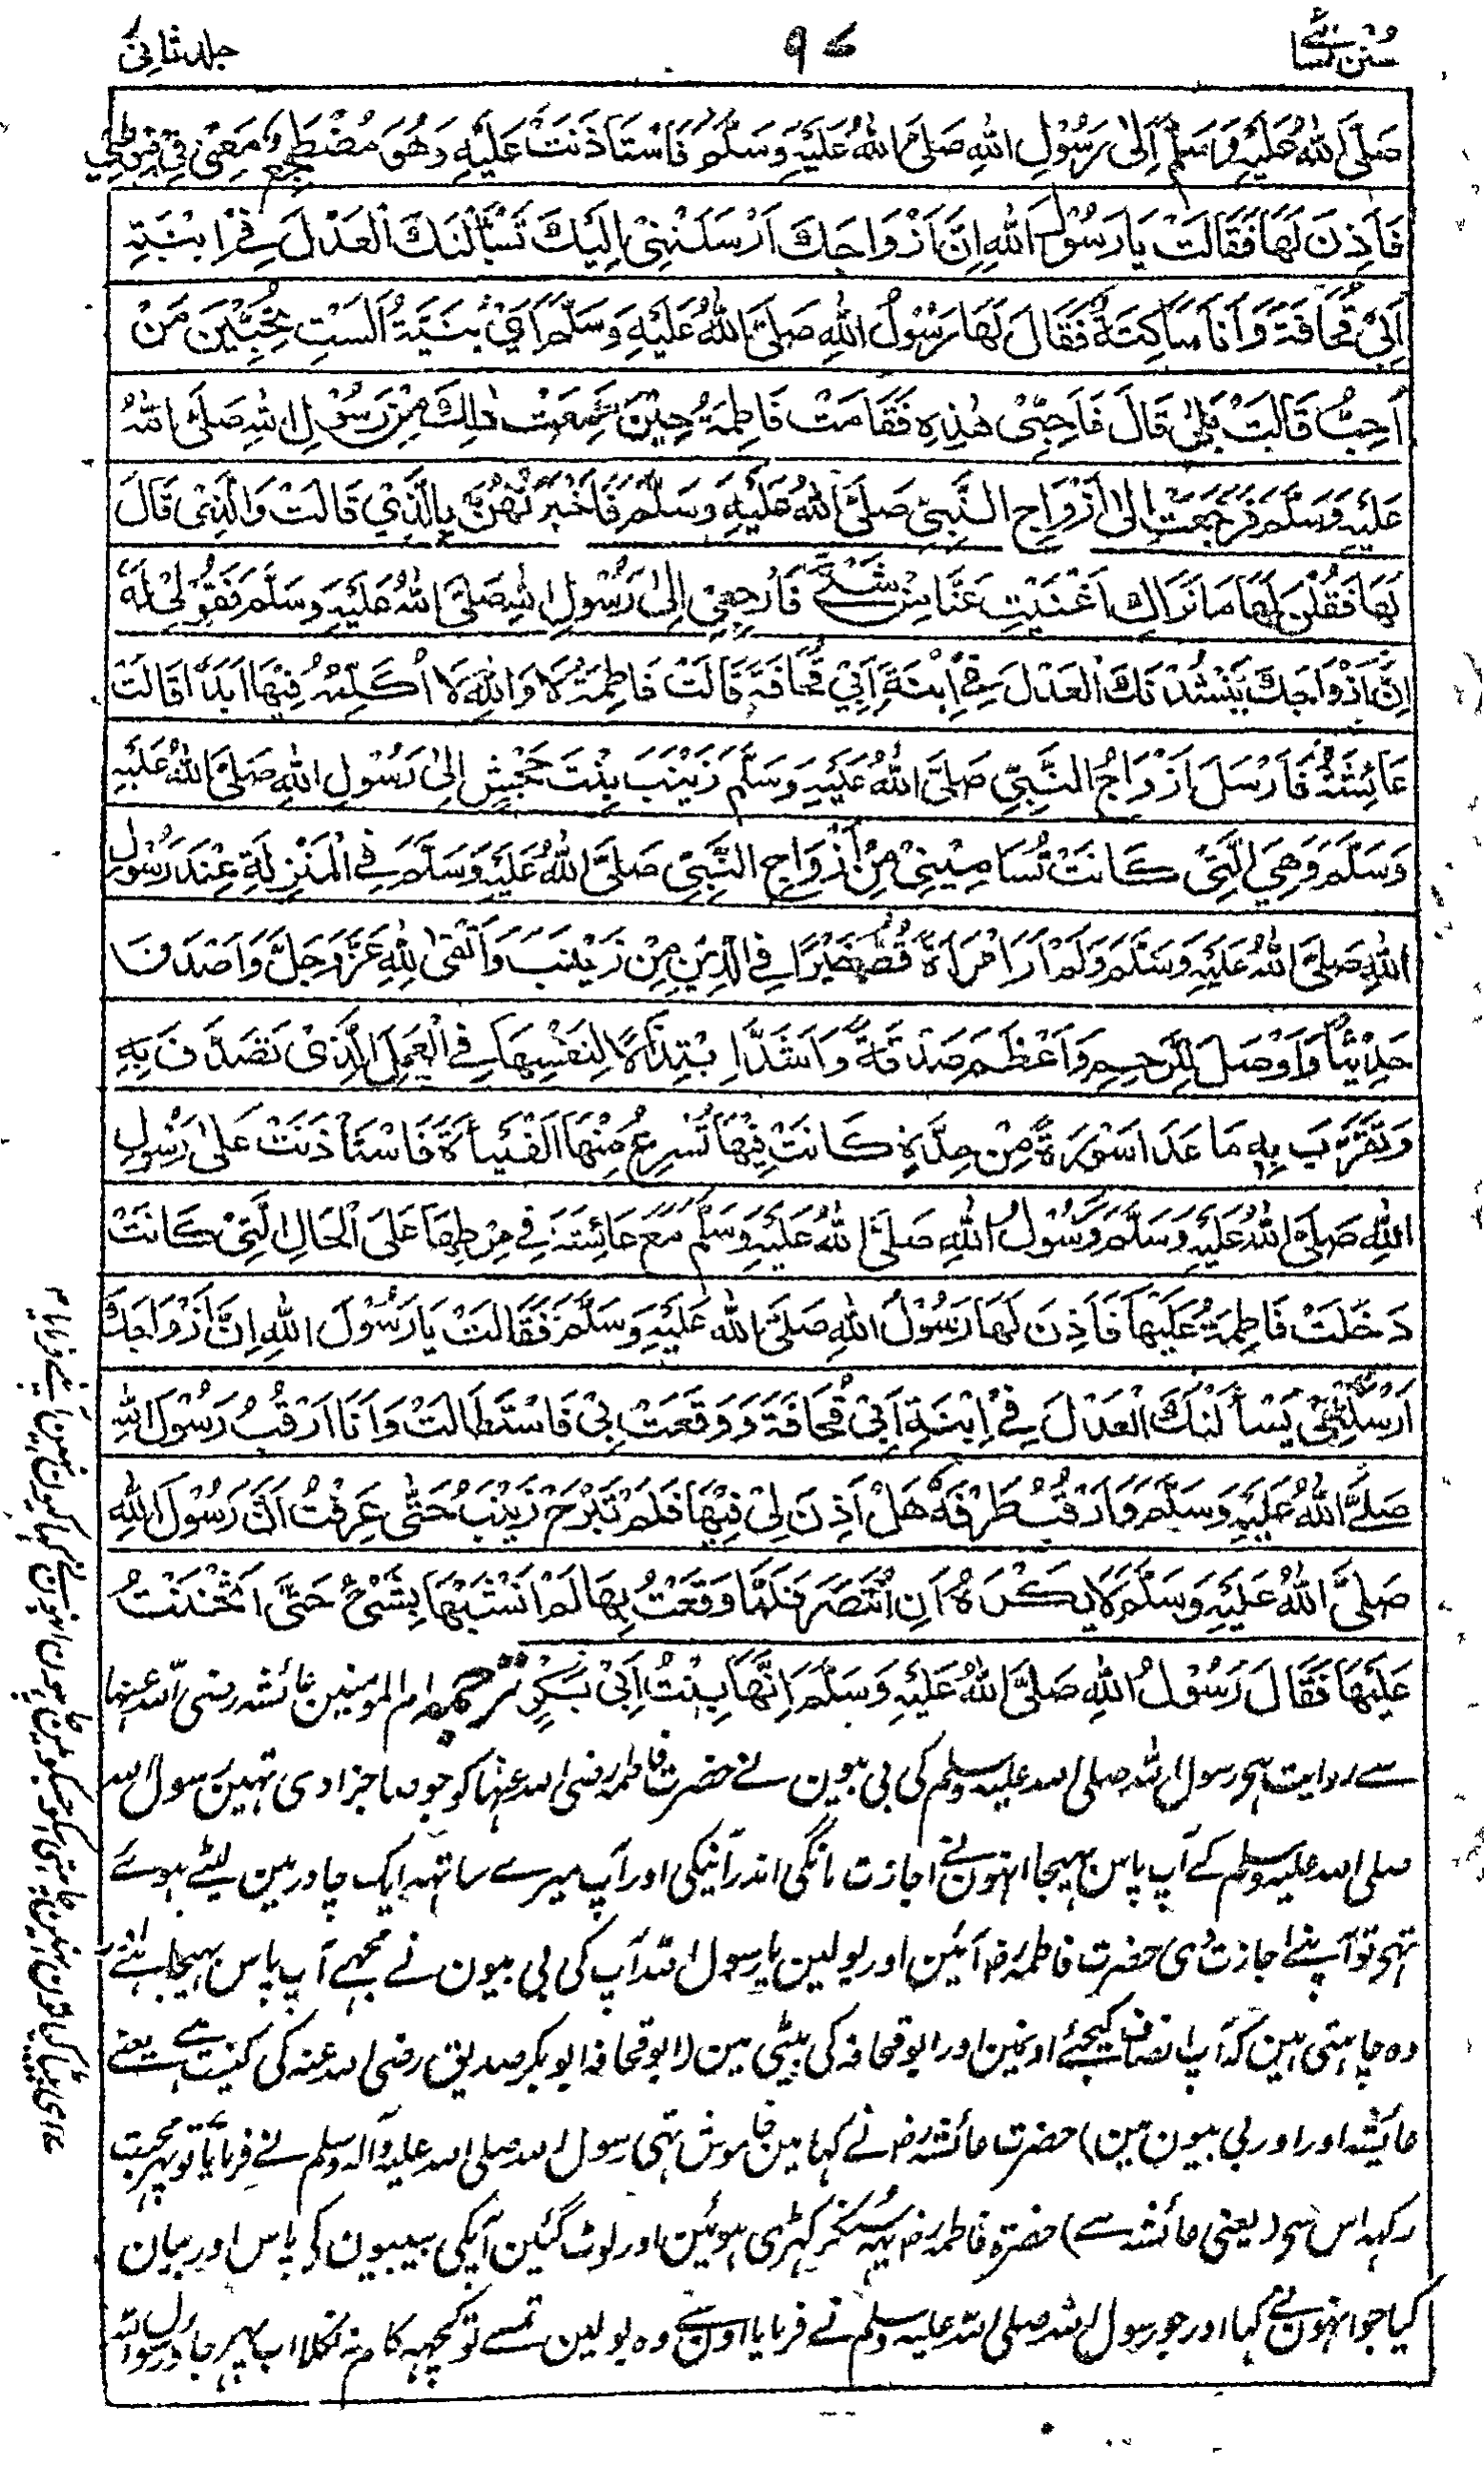 سنن نسائی
۹۷
جلد ثانی
صَلَّى اللهُ عَلَيْهِ وَسَلَّمَ إِلَى رَسُوْلِ اللهِ صَلَّى اللهُ عَلَيْهِ وَسَلَّمَ فَاسْتَاْذَنَتْ عَلَيْهِ وَهُوَ مُضْطَجِعٌ مَعِيَ فِيْ مِرْطِيْ
فَاَذِنَ لَهَا فَقَالَتْ يَا رَسُوْلَ اللهِ اِنَّ اَزْوَاجَكَ اَرْسَلْنَنِيْ اِلَيْكَ تَسْأَلْنَكَ الْعَدْلَ فِيْ ابْنَةِ
اَبِيْ قُحَافَةَ وَاَنَا سَاكِتَةٌ فَقَالَ لَهَا رَسُوْلُ اللهِ صَلَّى اللهُ عَلَيْهِ وَسَلَّمَ اَيْ بُنَيَّةُ اَلَسْتِ تُحِبِّيْنَ مَنْ
اُحِبُّ قَالَتْ بَلٰى قَالَ فَاَحِبِّيْ هٰذِهِ فَقَامَتْ فَاطِمَةُ حِيْنَ سَمِعَتْ ذٰلِكَ مِنْ رَسُوْلِ اللهِ صَلَّى اللهُ
عَلَيْهِ وَسَلَّمَ فَرَجَعَتْ اِلٰى اَزْوَاجِ النَّبِيِّ صَلَّى اللهُ عَلَيْهِ وَسَلَّمَ فَاَخْبَرَتْهُنَّ بِالَّذِيْ قَالَتْ وَالَّذِيْ قَالَ
لَهَا فَقُلْنَ لَهَا مَا نَرَاكِ اَغْنَيْتِ عَنَّا مِنْ شَيْءٍ فَارْجِعِيْ اِلٰى رَسُوْلِ اللهِ صَلَّى اللهُ عَلَيْهِ وَسَلَّمَ فَقُوْلِيْ لَهُ
اِنَّ اَزْوَاجَكَ يَنْشُدْنَكَ الْعَدْلَ فِيْ ابْنَةِ اَبِيْ قُحَافَةَ قَالَتْ فَاطِمَةُ لَا وَاللهِ لَا اُكَلِّمُهُ فِيْهَا اَبَدًا قَالَتْ
عَائِشَةُ فَاَرْسَلَ اَزْوَاجُ النَّبِيِّ صَلَّى اللهُ عَلَيْهِ وَسَلَّمَ زَيْنَبَ بِنْتَ جَحْشٍ اِلٰى رَسُوْلِ اللهِ صَلَّى اللهُ عَلَيْهِ
وَسَلَّمَ وَهِيَ الَّتِيْ كَانَتْ تُسَامِيْنِيْ مِنْ اَزْوَاجِ النَّبِيِّ صَلَّى اللهُ عَلَيْهِ وَسَلَّمَ فِي الْمَنْزِلَةِ عِنْدَ رَسُوْلِ
اللهِ صَلَّى اللهُ عَلَيْهِ وَسَلَّمَ وَلَمْ اَرَ امْرَاَةً قَطُّ خَيْرًا فِي الدِّيْنِ مِنْ زَيْنَبَ وَاَتْقٰى لِلّٰهِ عَزَّ وَجَلَّ وَاَصْدَقَ
حَدِيْثًا وَاَوْصَلَ لِلرَّحِمِ وَاَعْظَمَ صَدَقَةً وَاَشَدَّ ابْتِذَالًا لِنَفْسِهَا فِي الْعَمَلِ الَّذِيْ تَصَدَّقُ بِهِ
وَتَقَرَّبُ بِهِ مَا عَدَا سَوْرَةً مِنْ حِدَّةٍ كَانَتْ فِيْهَا تُسْرِعُ مِنْهَا الْفَيْأَةَ فَاسْتَأْذَنَتْ عَلٰى رَسُوْلِ
اللهِ صَلَّى اللهُ عَلَيْهِ وَسَلَّمَ وَرَسُوْلُ اللهِ صَلَّى اللهُ عَلَيْهِ وَسَلَّمَ مَعَ عَائِشَةَ فِيْ مِرْطِهَا عَلَى الْحَالِ الَّتِيْ كَانَتْ
دَخَلَتْ فَاطِمَةُ عَلَيْهَا فَاَذِنَ لَهَا رَسُوْلُ اللهِ صَلَّى اللهُ عَلَيْهِ وَسَلَّمَ فَقَالَتْ يَا رَسُوْلَ اللهِ اِنَّ اَزْوَاجَكَ
اَرْسَلْنَنِيْ يَسْأَلْنَكَ الْعَدْلَ فِيْ ابْنَةِ اَبِيْ قُحَافَةَ وَوَقَعَتْ بِيْ فَاسْتَطَالَتْ وَاَنَا اَرْقُبُ رَسُوْلَ اللهِ
صَلَّى اللهُ عَلَيْهِ وَسَلَّمَ وَاَرْقُبُ طَرْفَهُ هَلْ اَذِنَ لِيْ فِيْهَا فَلَمْ تَبْرَحْ زَيْنَبُ حَتّٰى عَرَفْتُ اَنَّ رَسُوْلَ اللهِ
صَلَّى اللهُ عَلَيْهِ وَسَلَّمَ لَا يَكْرَهُ اَنْ اَنْتَصِرَ فَلَمَّا وَقَعْتُ بِهَا لَمْ اَنْشَبْهَا بِشَيْءٍ حَتّٰى اَثْخَنْتُ
عَلَيْهَا فَقَالَ رَسُوْلُ اللهِ صَلَّى اللهُ عَلَيْهِ وَسَلَّمَ اِنَّهَا بِنْتُ اَبِيْ بَكْرٍ ترجمہ ام المومنین عائشہ رضی اللہ عنہا
سے روایت ہی رسول اللہ صلی اللہ علیہ وسلم کی بی بیون نے حضرت فاطمہ رضی اللہ عنہا کو جو صاحبزادی تہین رسول اللہ
صلی اللہ علیہ وسلم کے آپ پاس بہیجا انہون نے اجازت مانگی اندر آنیکی اور آپ میرے ساتھ ایک چادر مین لیٹے ہوئے
تہی تو آپنے اجازت دی حضرت فاطمہ رض آئین اور بولین یا رسول اللہ آپ کی بی بیون نے مجہے آپ پاس بہیجا ہے
وہ چاہتی ہین کہ آپ انصاف کیجئے اونمین اور ابو قحافہ کی بیٹی مین (ابو قحافہ ابوبکر صدیق رضی اللہ عنہ کی کنیت ہے یعنے
عائشہ اور اور بی بیون مین) حضرت عائشہ رض نے کہا مین خاموش تہی رسول اللہ صلی اللہ علیہ وآلہ وسلم نے فرمایا تو پہر محبت
رکہہ اس سی (یعنی عائشہ سے) حضرت فاطمہ رض یہہ سنکر کہڑی ہوئین اور لوٹ گئین آپکی بیبیون کی پاس اور بیان
کیا جو انہون نے کہا اور جو رسول اللہ صلی اللہ علیہ وسلم نے فرمایا اون سے وہ بولین تمسے تو کچہہ کام نہ نکلا اب پہر جاؤ رسول اللہ